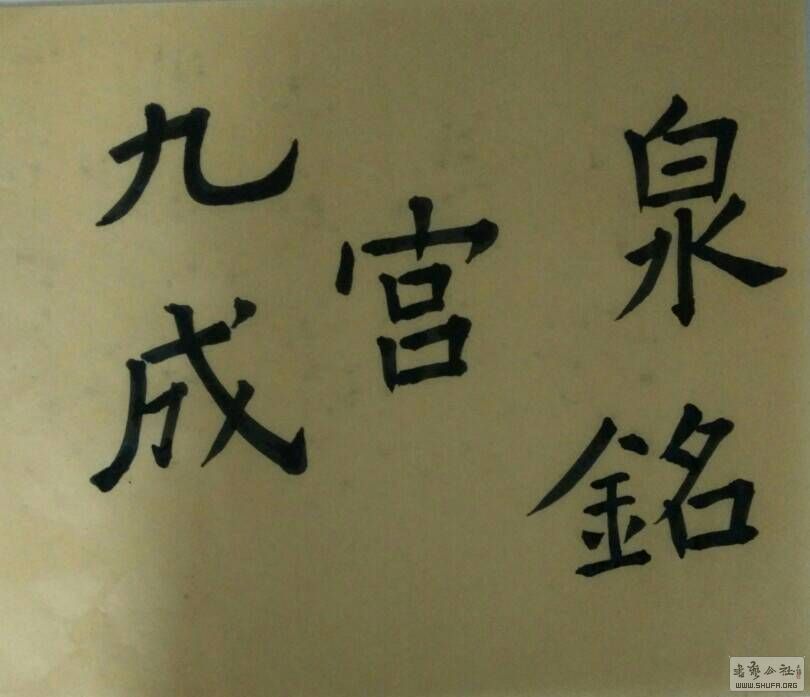 九成
宮
泉銘
書藝公社
WWW.SHUFA.ORG